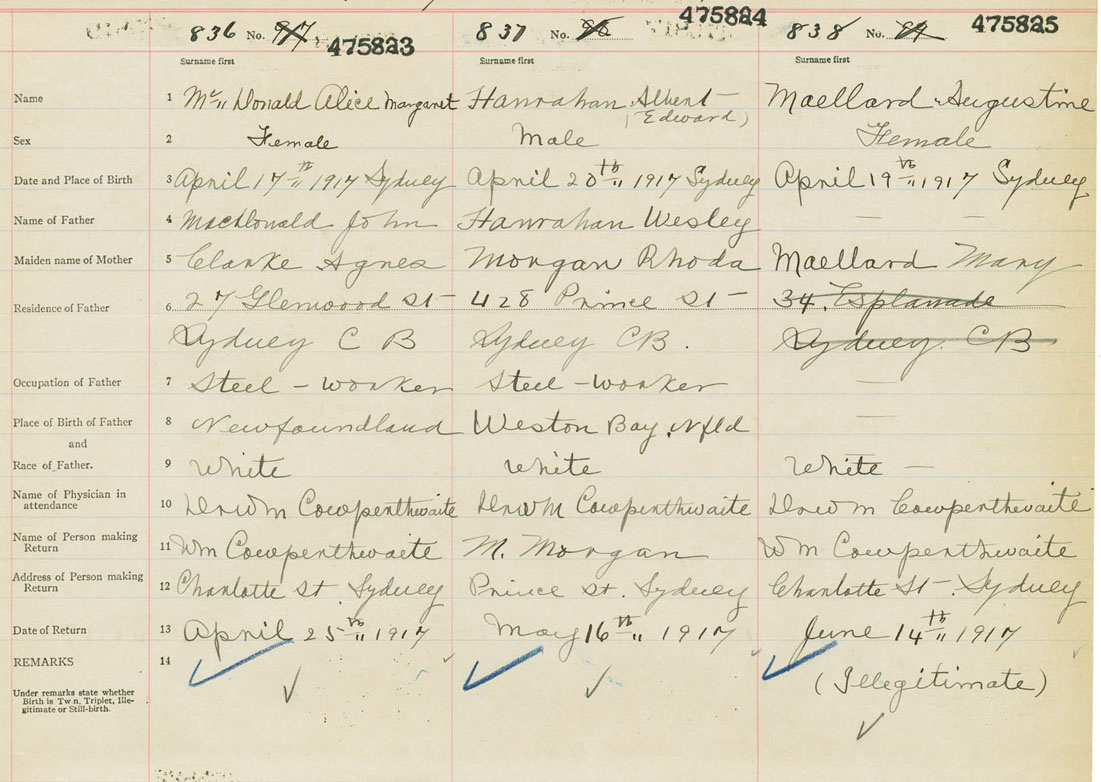 836 No. 475823
837 No. 475824
838 No. 475825
Surname first Surname first Surname first
Name 1 Mc" Donald Alice Margaret Hanrahan Albert (Edward) Maellard Augustine
Sex 2 Female Male Female
Date and Place of Birth 3 April 17th" 1917 Sydney April 20th" 1917 Sydney April 19th" 1917 Sydney
Name of Father 4 MacDonald John Hanrahan Wesley — —
Maiden name of Mother 5 Clarke Agnes Morgan Rhoda Maellard Mary
Residence of Father 6 27 Glenwood St 428 Prince St 34. Esplanade
Sydney C B Sydney CB. Sydney. CB
Occupation of Father 7 Steel - worker Steel - worker —
Place of Birth of Father 8 Newfoundland Weston Bay, Nfld —
and
Race of Father. 9 White White White —
Name of Physician in
attendance 10 Dr Wm Cowpenthwaite Dr Wm Cowpenthwaite Dr Wm Cowpenthwaite
Name of Person making
Return 11 Wm Cowpenthwaite M. Morgan Wm Cowpenthwaite
Address of Person making
Return 12 Charlotte St. Sydney Prince St. Sydney Charlotte St - Sydney
Date of Return 13 April 25th" 1917 May 16th" 1917 June 14th" 1917
REMARKS 14
(Illegitimate)
Under remarks state whether
Birth is Twin, Triplet, Ille-
gitimate or Still-birth.